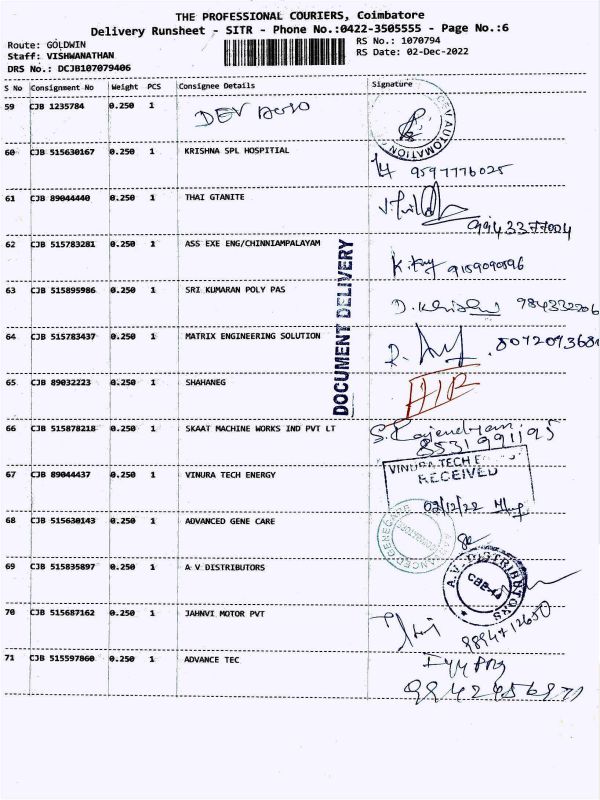 THE PROFESSIONAL COURIERS, Coimbatore
Delivery Runsheet - SITR - Phone No.:0422-3505555 - Page No.:6
Route: GOLDWIN RS No.: 1070794
Staff: VISHWANATHAN RS Date: 02-Dec-2022
DRS No.: DCJB107079406
S No Consignment No Weight PCS Consignee Details Signature
59 CJB 1235784 0.250 1 DEV AUTO
DEV AUTOMATION
60 CJB 515630167 0.250 1 KRISHNA SPL HOSPITIAL
9597776025
61 CJB 89044440 0.250 1 THAI GTANITE
9943377004
62 CJB 515783281 0.250 1 ASS EXE ENG/CHINNIAMPALAYAM
9159090896
DOCUMENT DELIVERY
63 CJB 515895986 0.250 1 SRI KUMARAN POLY PAS
64 CJB 515783437 0.250 1 MATRIX ENGINEERING SOLUTION
65 CJB 89032223 0.250 1 SHAHANEG
66 CJB 515878218 0.250 1 SKAAT MACHINE WORKS IND PVT LT
S. Rajendran
8531991195
67 CJB 89044437 0.250 1 VINURA TECH ENERGY
VINURA TECH
RECEIVED
02/12/22
68 CJB 515630143 0.250 1 ADVANCED GENE CARE
ADVANCED GENECARE
69 CJB 515835897 0.250 1 A V DISTRIBUTORS
A.V. DISTRIBUTORS
CBE-14
70 CJB 515687162 0.250 1 JAHNVI MOTOR PVT
9894712650
71 CJB 515597860 0.250 1 ADVANCE TEC